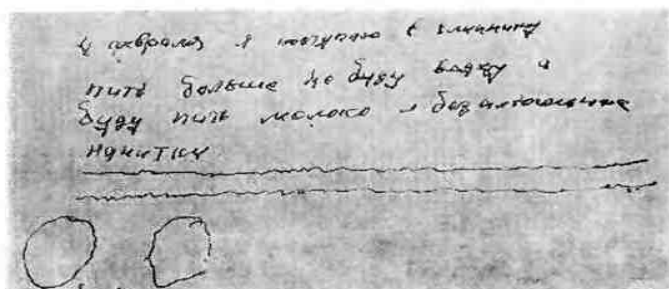 4 февраля я поступаю в клинику
пить больше не буду водку и
буду пить молоко и безалкогольные
напитки